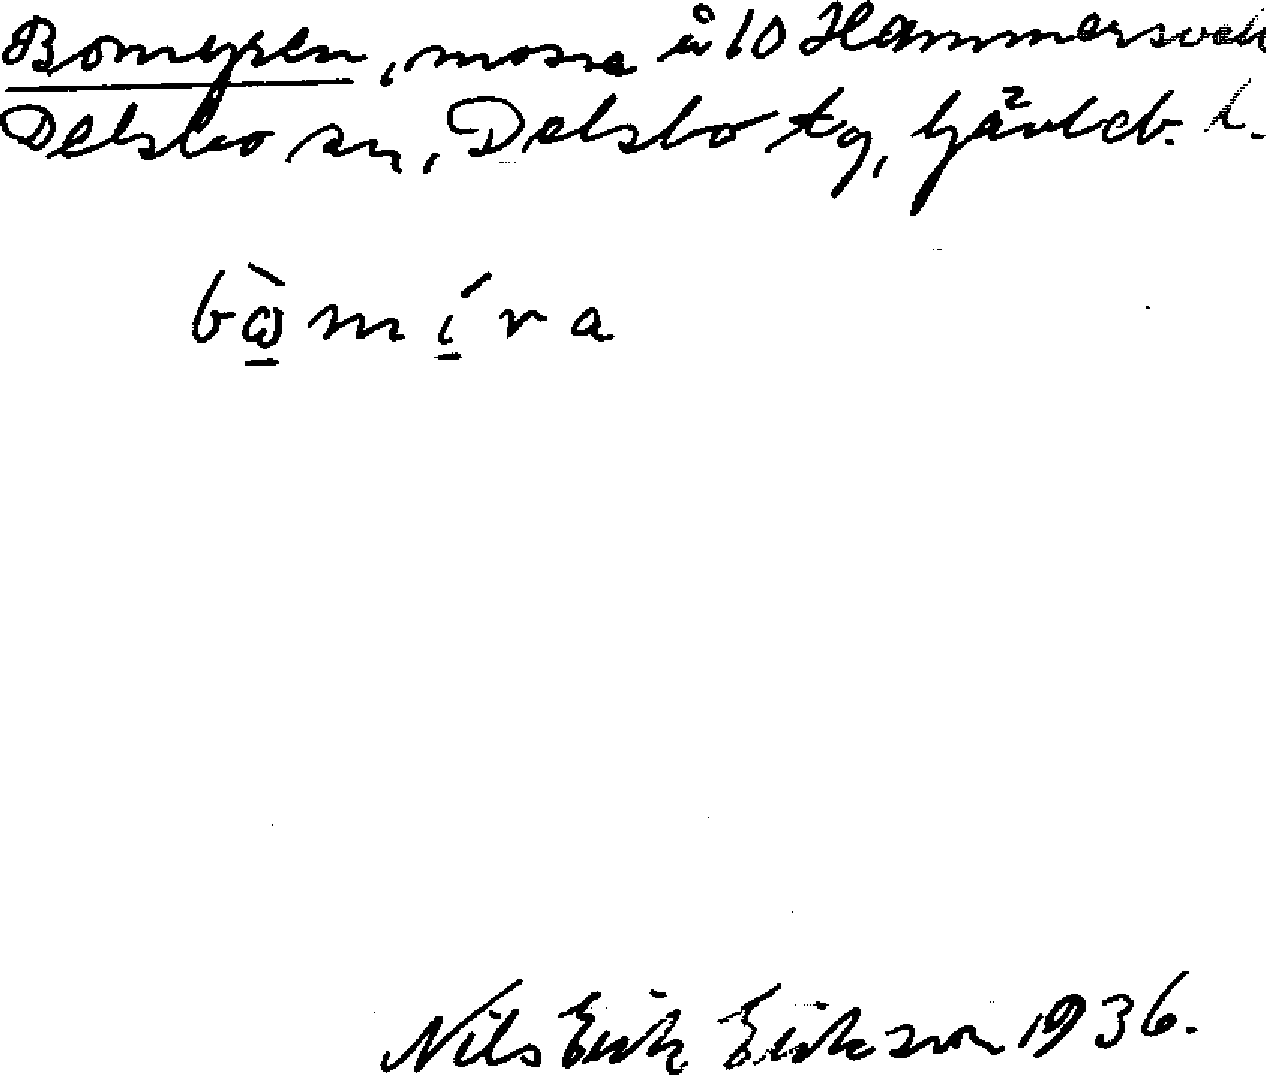 Bomyren, mosse å 10 Hammersvall
Delsbo sn, Delsbo tg, Gävleb. l.
bòmíra
Nils Erik Erikson 1936.